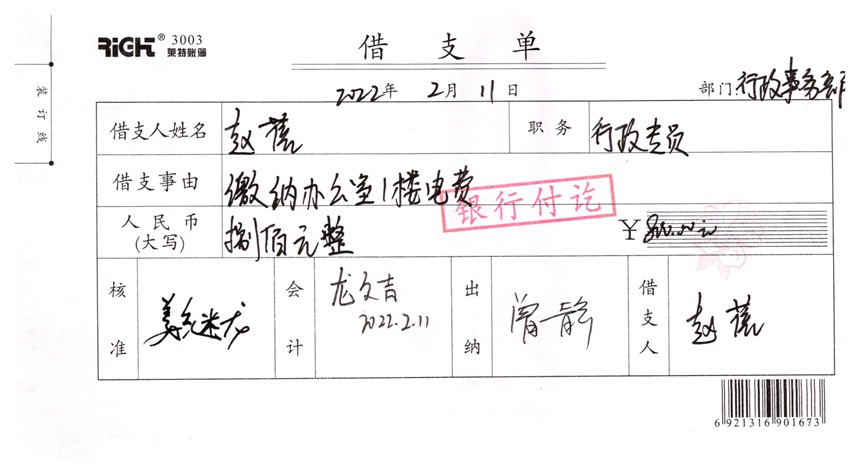 RiGHT® 3003
莱特账簿
借支单
2022年 2月 11日 部门 行政事务部
装订线
借支人姓名 赵蓓 职务 行政专员
借支事由 缴纳办公室1楼电费
银行付讫
人民币
(大写) 捌佰元整 ¥ 800.00元
核准 会计 龙文吉 出纳 曾静 借支人 赵蓓
2022.2.11
6 921316 901673